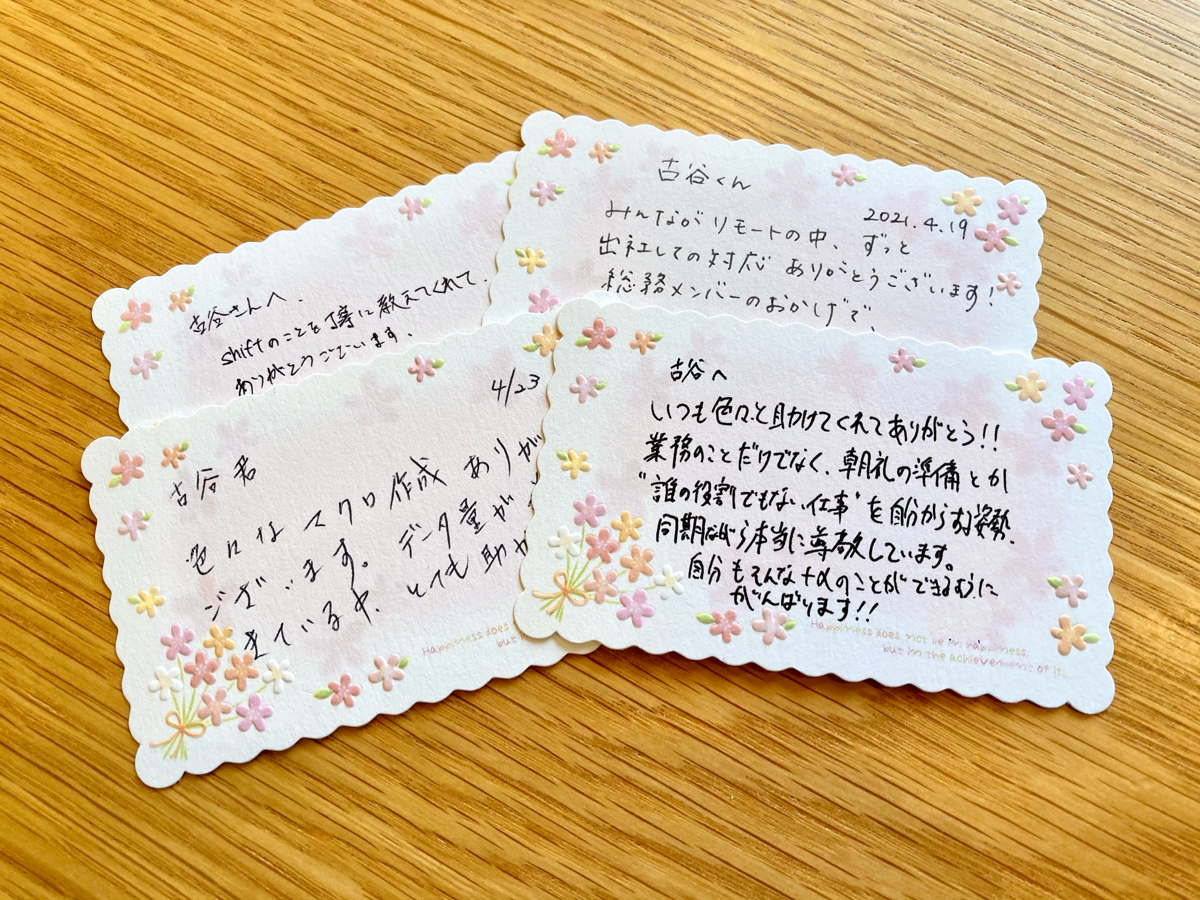 古谷くん
2021.4.19
みんながリモートの中、ずっと
出社しての対応 ありがとうございます!
総務メンバーのおかげで、
古谷さんへ、
shiftのことを丁寧に教えてくれて、
ありがとうございます、
4/23
古谷君
色々な マクロ作成 ありが
ございます。データ量が
きている中、とても助か
古谷へ
いつも色々と助けてくれてありがとう!!
業務のことだけでなく、朝礼の準備とか
"誰の役割でもない仕事"を自分からする姿勢、
同期ながら本当に尊敬しています。
自分もそんな+αのことができるように
がんばります!!
Happiness does
but in
Happiness does not lie in happiness,
but in the achievement of it.